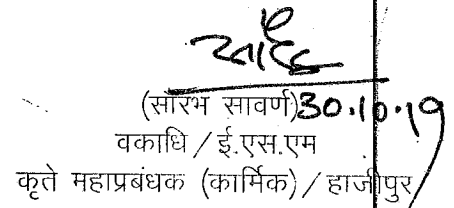 (सारभ सावर्ण) 30.10.19
वकाधि / ई.एस.एम
कृते महाप्रबंधक (कार्मिक) / हाजीपुर